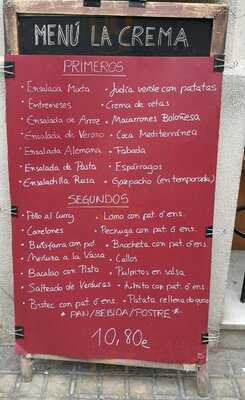 MENÚ LA CREMA
PRIMEROS
• Ensalada Mixta • Judía verde con patatas
• Entremeses • Crema de
• Ensalada de Arroz • Macarrones Boloñesa
• Ensalada de Verano • Coca Mediterránea
• Ensalada Alemana • Fabada
• Ensalada de Pasta • Espárragos
• Ensaladilla Rusa • Gazpacho (en temporada)
SEGUNDOS
• Pollo al Curry • Lomo con pat. ó ens.
• Canelones • Pechuga con pat. ó ens.
• Butifarra con pat. • Brocheta con pat. ó ens.
• a la Vasca • Callos
• Bacalao con Pisto • en salsa
• Salteado de Verduras • con pat. ó ens.
• Bistec con pat. ó ens • Patata rellena de
* PAN/BEBIDA/POSTRE *
10,80€